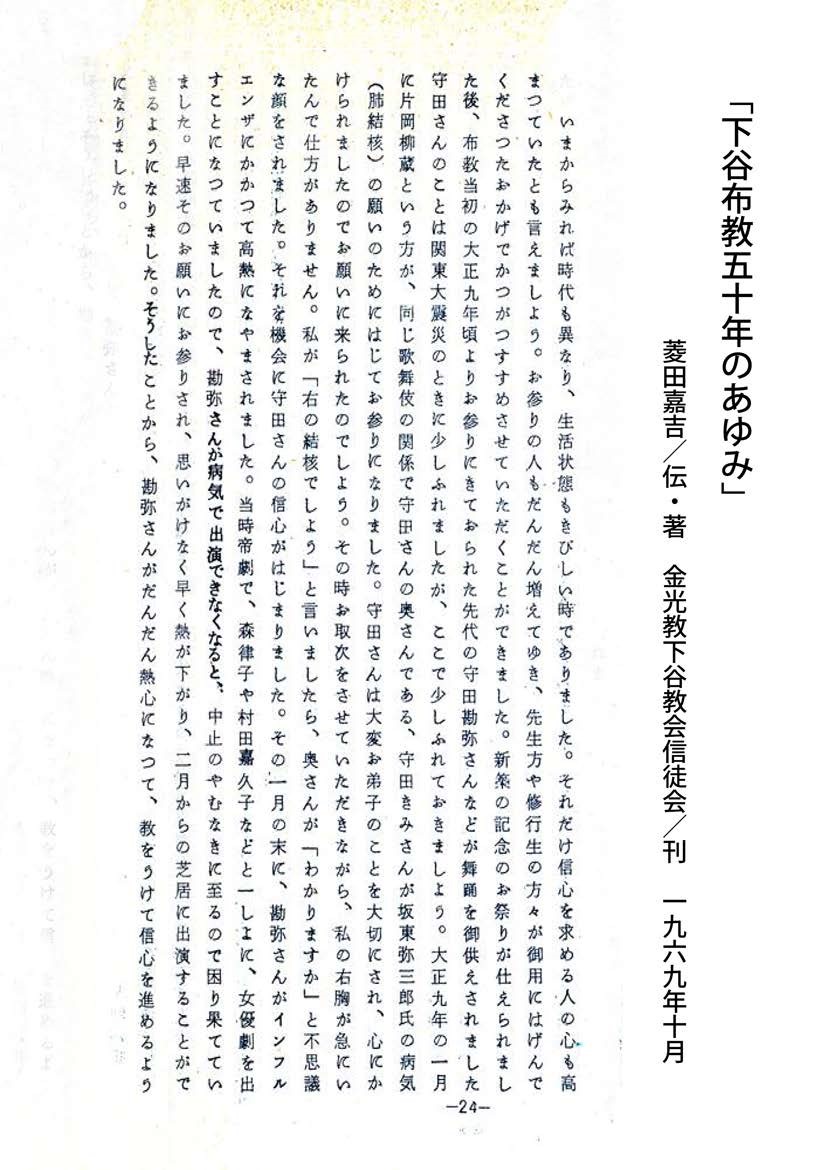 「下谷布教五十年のあゆみ」
菱田嘉吉／伝・著　金光教下谷教会信徒会／刊　一九六九年十月
いまからみれば時代も異なり、生活状態もきびしい時でありました。それだけ信心を求める人の心も高
まつていたとも言えましよう。お参りの人もだんだん増えてゆき、先生方や修行生の方々が御用にはげんで
くださつたおかげでかつがつすすめさせていただくことができました。新築の記念のお祭りが仕えられまし
た後、布教当初の大正九年頃よりお参りにきておられた先代の守田勘弥さんなどが舞踊を御供えされました
守田さんのことは関東大震災のときに少しふれましたが、ここで少しふれておきましよう。大正九年の一月
に片岡柳蔵という方が、同じ歌舞伎の関係で守田さんの奥さんである、守田きみさんが坂東弥三郎氏の病気
（肺結核）の願いのためにはじてお参りになりました。守田さんは大変お弟子のことを大切にされ、心にか
けられましたのでお願いに来られたのでしよう。その時お取次をさせていただきながら、私の右胸が急にい
たんで仕方がありません。私が「右の結核でしよう」と言いましたら、奥さんが「わかりますか」と不思議
な顔をされました。それを機会に守田さんの信心がはじまりました。その一月の末に、勘弥さんがインフル
エンザにかかつて高熱になやまされました。当時帝劇で、森律子や村田嘉久子などと一しよに、女優劇を出
すことになつていましたので、勘弥さんが病気で出演できなくなると、中止のやむなきに至るので困り果ててい
ました。早速そのお願いにお参りされ、思いがけなく早く熱が下がり、二月からの芝居に出演することがで
きるようになりました。そうしたことから、勘弥さんがだんだん熱心になつて、教をうけて信心を進めるよう
になりました。
—24—